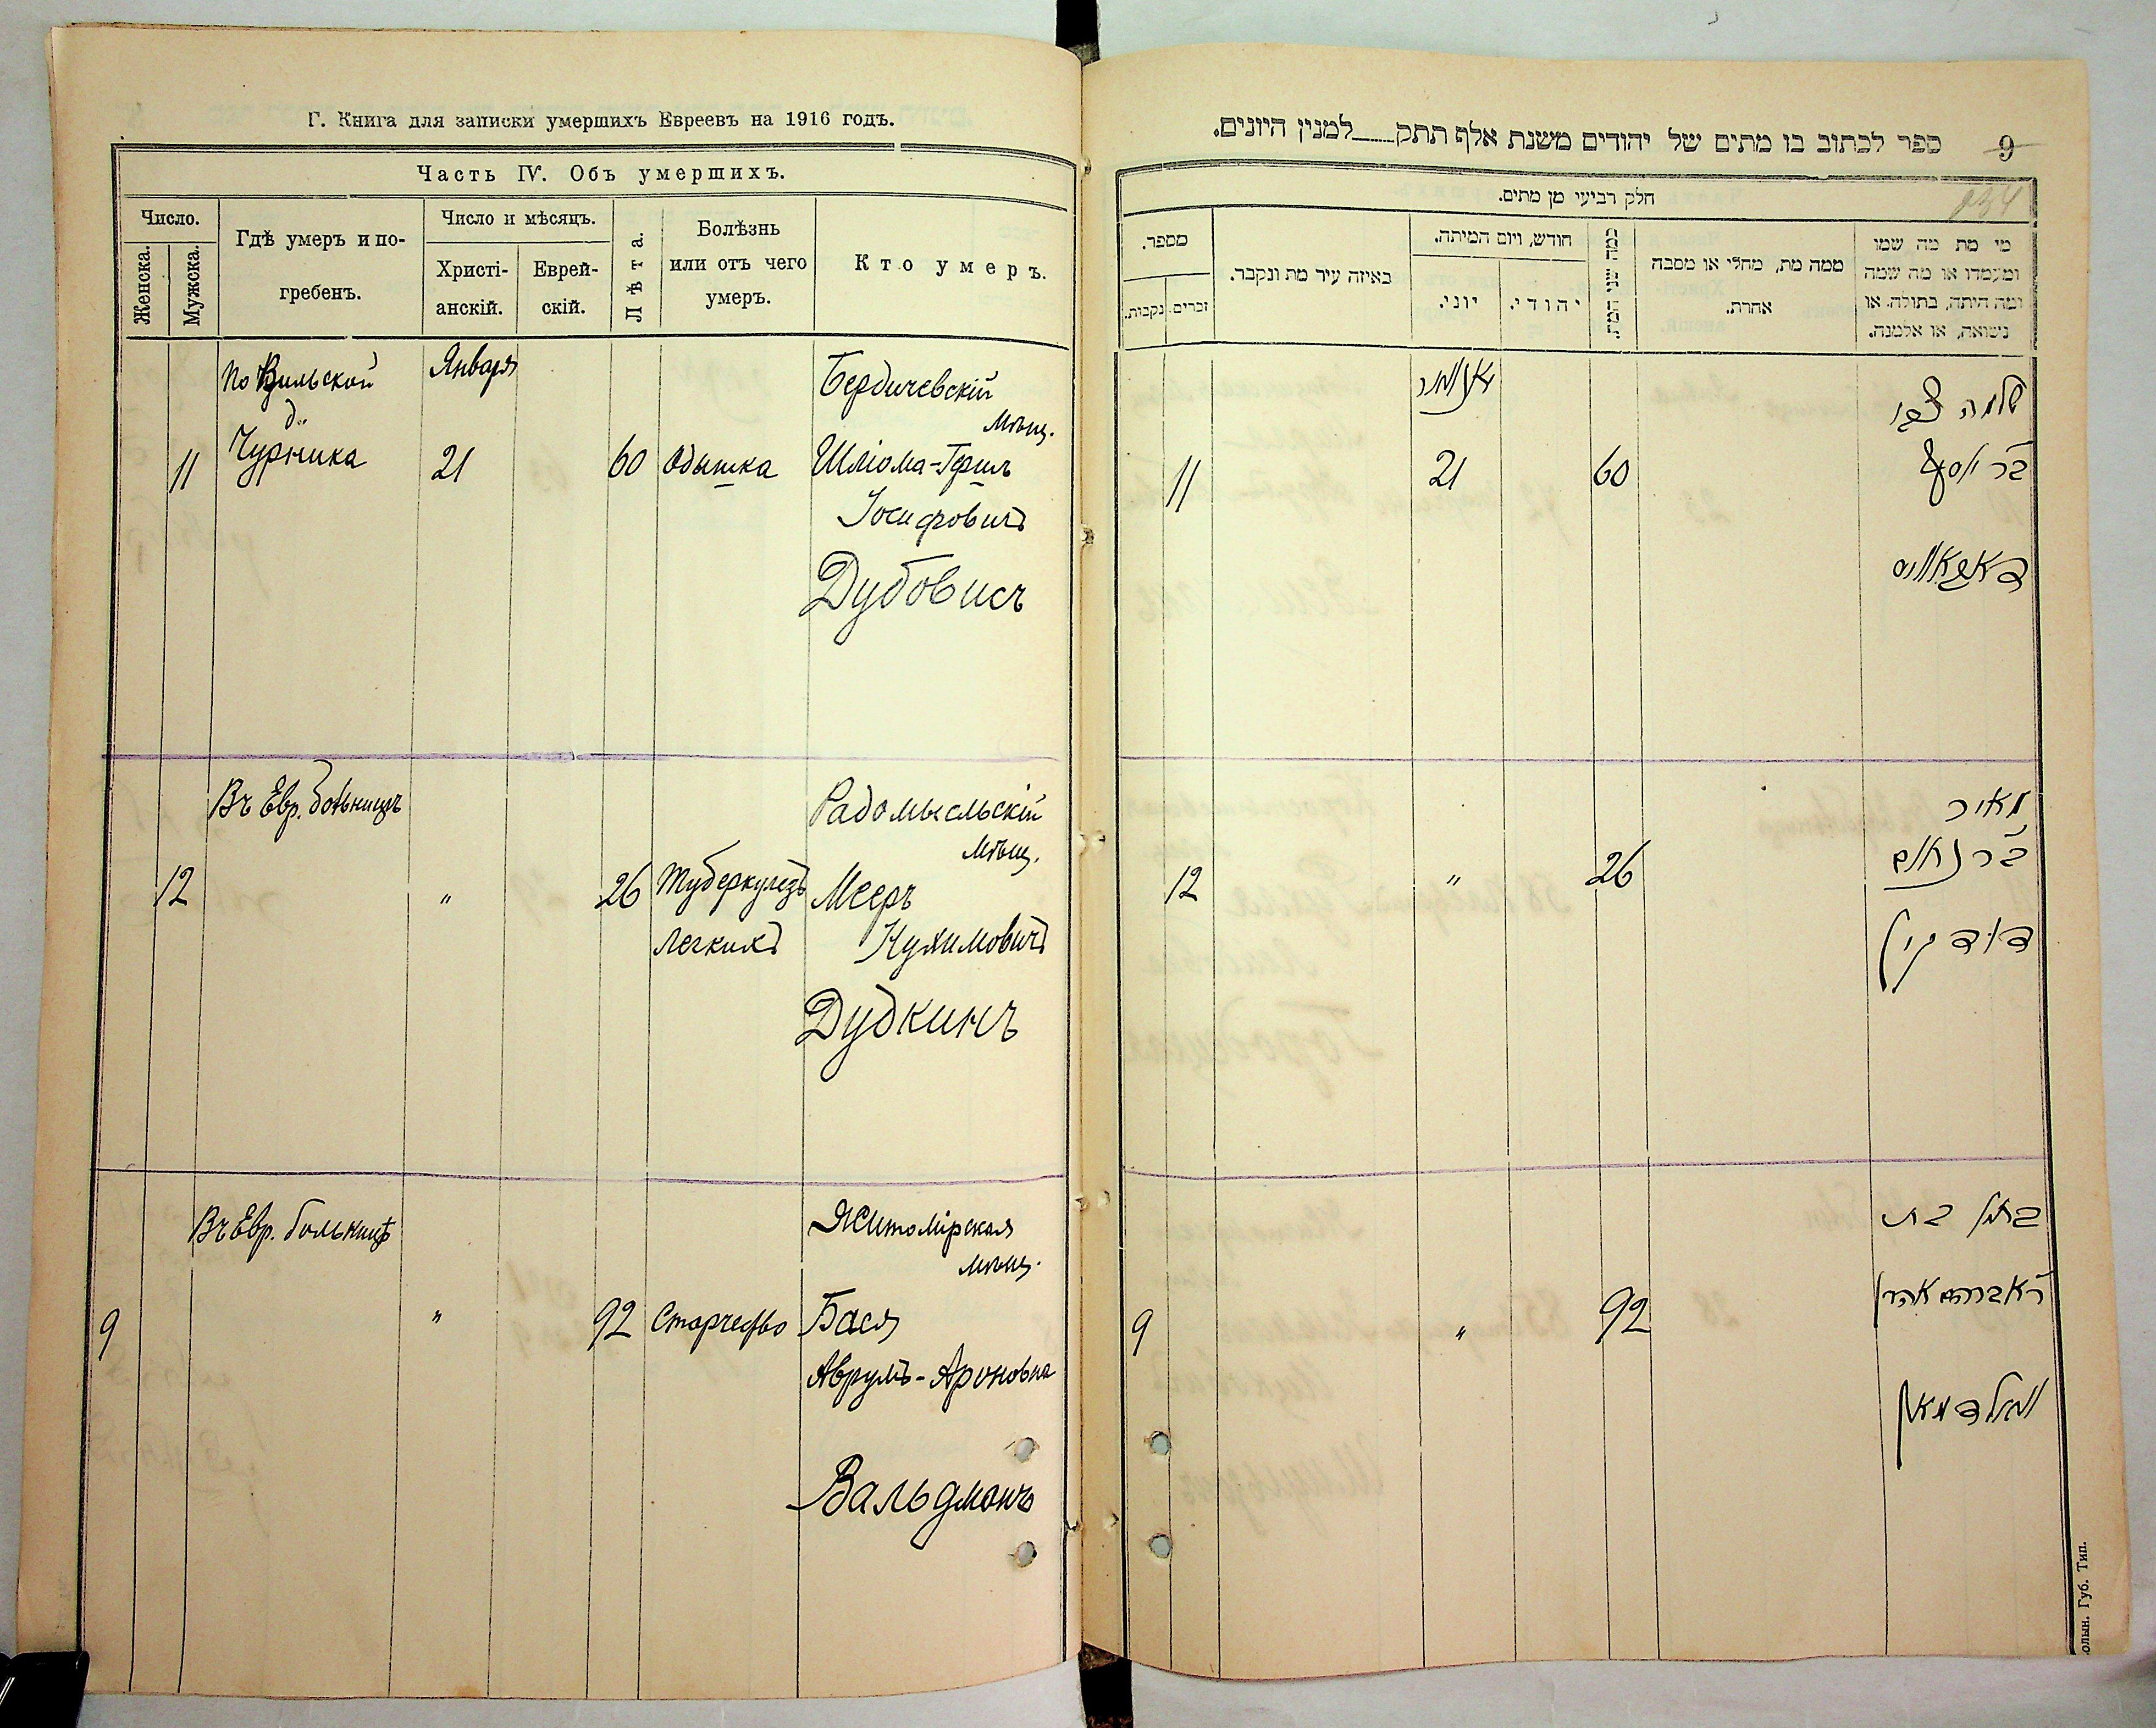 Г. Книга для записки умершихъ Евреевъ на 1916 годъ.
Часть IV. Объ умершихъ.
Число.
Женска.
Мужска.
Гдѣ умеръ и по-
гребенъ.
Число и мѣсяцъ.
Христі-
анскій.
Еврей-
скій.
Лѣта.
Болѣзнь
или отъ чего
умеръ.
Кто умеръ.
По Вильской
д.
Чурника
Января
Бердичевскій
мѣщ.
11
21
60
Одышка
Шліома-
Іосифовичъ
Дубовисъ
Въ Евр. больницѣ
Радомысльскій
мѣщ.
12
"
26
Туберкулезъ
легкихъ
Мееръ
Нухимовичъ
Дудкинъ
Въ Евр. больницѣ
Житомірская
мѣщ.
9
"
92
Старчество
Бася
Аврумъ-Ароновна
Вальдманъ
ספר לכתוב בו מתים של יהודים משנת אלף תתק למנין היונים.
9
234
חלק רביעי מן מתים.
מספר.
זכרים.
נקבות.
באיזה עיר מת ונקבר.
חודש, ויום המיתה.
יוני.
יהודי.
כמה שני המת.
ממה מת, מחלי או מסבה
אחרת.
מי מת מה שמו
ומעמדו או מה שמה
ומה היתה, בתולה או
נשואה, או אלמנה.
יאנואר
שלמה צבי
בר יוסף
דאבאוויס
11
21
60
מאיר
בר נחום
דודקין
12
"
26
באסי בת
ר אברהם אהרן
וואלדמאן
9
"
92
олын. Губ. Тип.